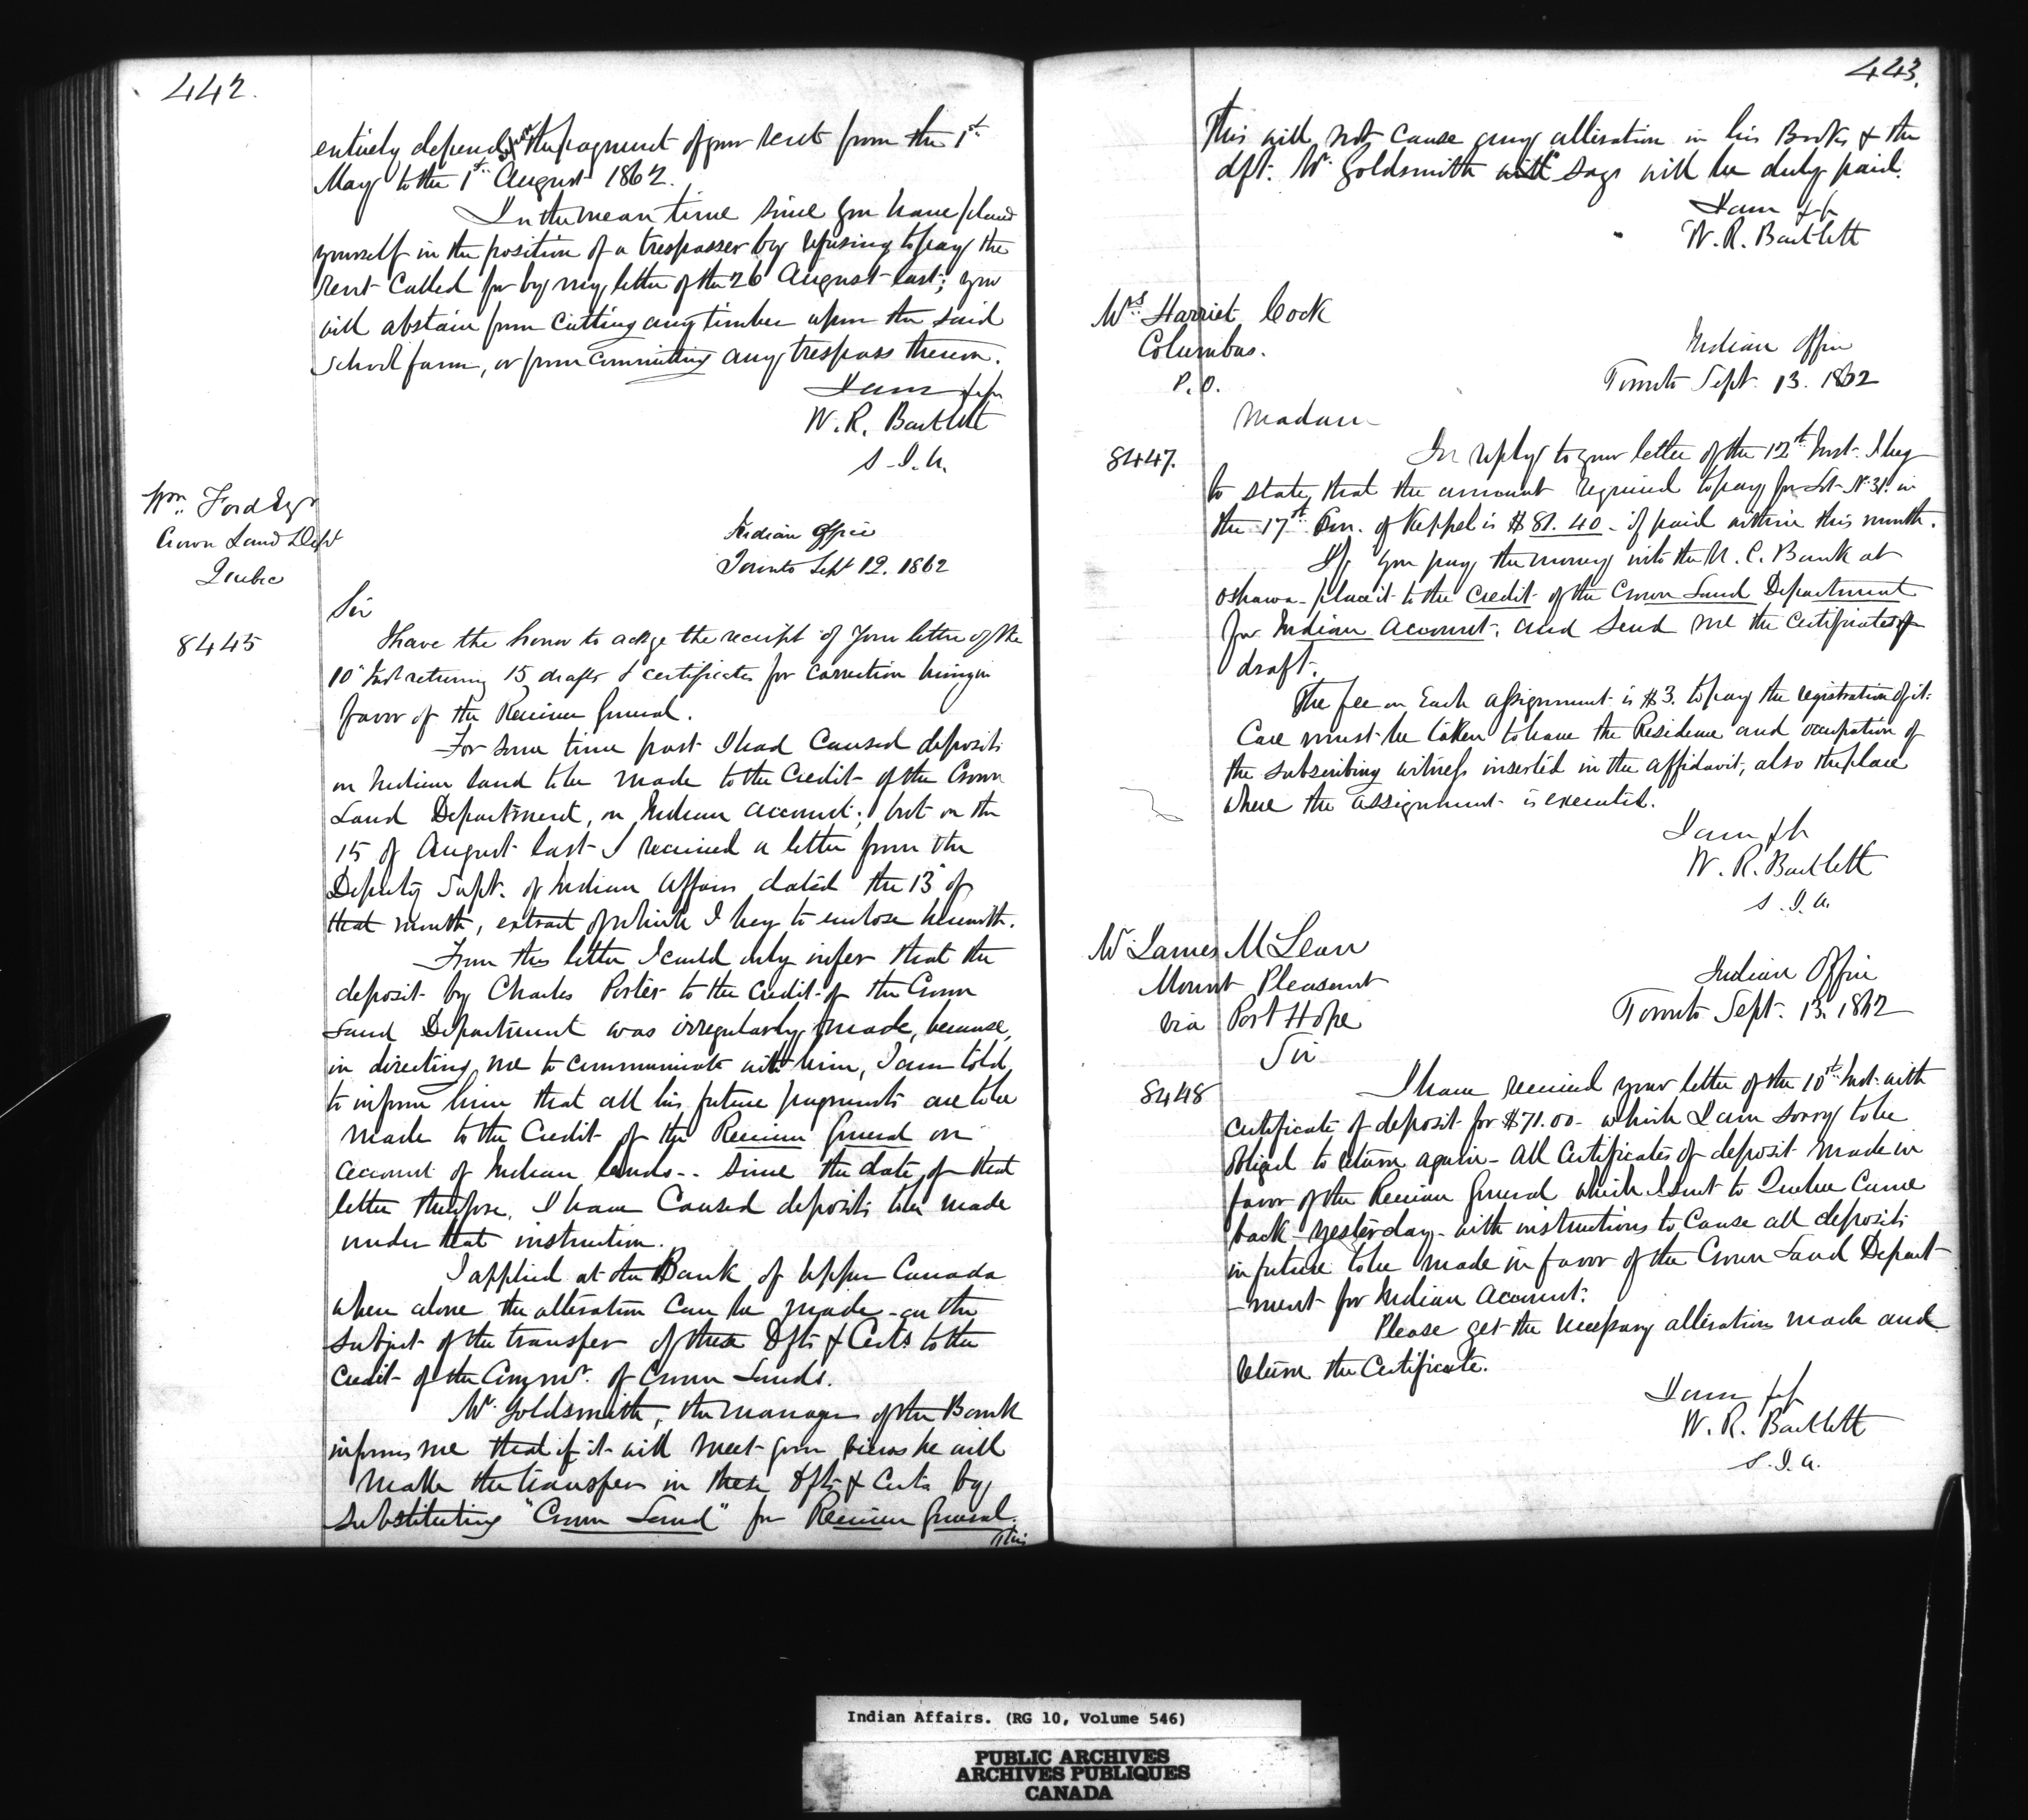 442.
entirely depend upon the payment of your rent from the 1st
May to the 1st August 1862.
In the mean time since you have placed
yourself in the position of a trespasser by refusing to pay the
rent called for by my letter of the 26 August last; you
will abstain from cutting any timber upon the said
School farm, or from committing any trespass thereon.
I am &c
W. R. Bartlett
S. I. A.
Wm Ford Esqr
Crown Land Dept
Quebec
Indian Office
Toronto Sept 12. 1862
Sir
8445
I have the honor to ackge the receipt of your letter of the
10" Inst returning 15 drafts & certificates for correction being in
favor of the Receiver General.
For some time past I had caused deposits
on Indian land to be made to the Credit of the Crown
Land Department, on Indian account; but on the
15 of August last I received a letter from the
Deputy Supt. of Indian Affairs dated the 13" of
that month, extract of which I beg to enclose herewith.
From this letter I could only infer that the
deposit by Charles Porter to the Credit of the Crown
Land Department was irregularly made, because,
in directing me to communicate with him, I am told
to inform him that all his future payments are to be
made to the Credit of the Receiver General on
account of Indian lands -. Since the date of that
letter therefore, I have Caused deposits to be made
under that instruction.
I applied at the Bank of Upper Canada
where alone the alteration can be made - on the
subject of the transfer of these Dfts & Certs to the
Credit of the Commr. of Crown Lands.
Mr. Goldsmith, the manager of the Bank
informs me that if it will meet your views he will
make the transfer in these Dfts & Certs by
substituting "Crown Land" for Receiver General.
This
443.
This will not cause any alteration in his Books & the
dft. Mr Goldsmith will says will be duly paid.
I am &c
W. R. Bartlett
Mrs Harriet Cock
Columbus.
P. O.
Indian Office
Toronto Sept. 13. 1862
Madam
8447.
In reply to your letter of the 12th Inst. I beg
to state, that the amount required to pay for Lot No 31. in
the 17th Con. of Keppel is $81.40 - if paid within this month.
If you pay the money into the U. C. Bank at
Oshawa - place it to the credit of the Crown Land Department
for Indian Account. and send me the Certificates of
draft.
The fee on Each assignment is $3. to pay the registration of it.
Care must be taken to have the Residence and occupation of
the subscribing witness inserted in the affidavit, also the place
where the assignment is executed.
I am &c
W. R. Bartlett
S. I. A.
Mr James McLean
Mount Pleasant
via Port Hope
Indian Office
Toronto Sept. 13. 1862
Sir
8448
I have received your letter of the 10th Inst. with
certificate of deposit for $71.00 - which I am sorry to be
obliged to return again - all certificates of deposit made in
favor of the Receiver General which I sent to Quebec came
back yesterday - with instructions to cause all deposits
in future to be made in favor of the Crown Land Depart
-ment for Indian Account.
Please get the necessary alterations made and
return the Certificate.
I am &c
W. R. Bartlett
S. I. A.
Indian Affairs. (RG 10, Volume 546)
PUBLIC ARCHIVES
ARCHIVES PUBLIQUES
CANADA